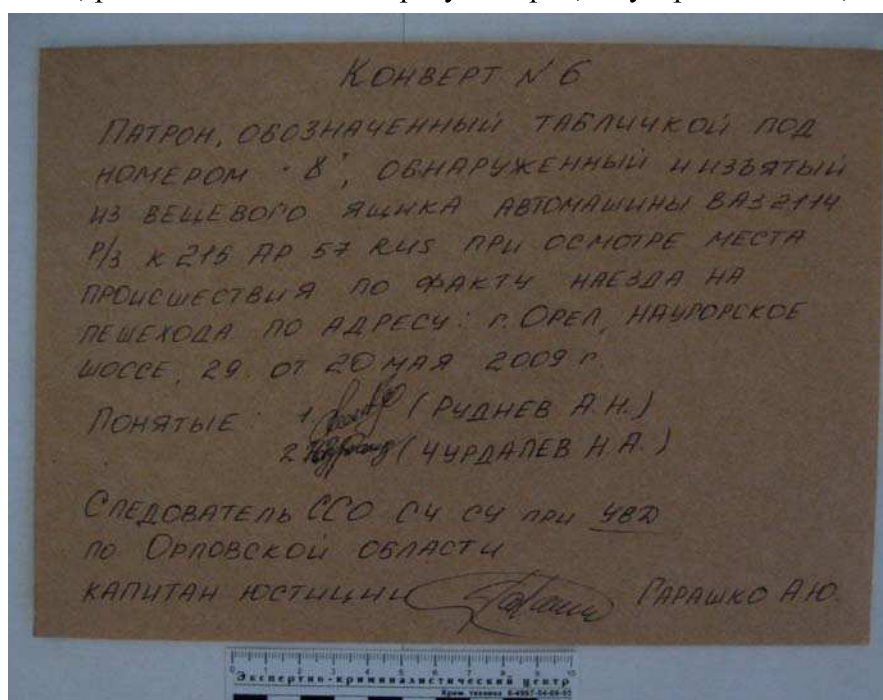 КОНВЕРТ N 6
ПАТРОН, ОБОЗНАЧЕННЫЙ ТАБЛИЧКОЙ ПОД
НОМЕРОМ "8", ОБНАРУЖЕННЫЙ И ИЗЪЯТЫЙ
ИЗ ВЕЩЕВОГО ЯЩИКА АВТОМАШИНЫ ВАЗ 2114
Р/З К 215 АР 57 RUS ПРИ ОСМОТРЕ МЕСТА
ПРОИСШЕСТВИЯ ПО ФАКТУ НАЕЗДА НА
ПЕШЕХОДА ПО АДРЕСУ: Г. ОРЕЛ, НАУГОРСКОЕ
ШОССЕ, 29. ОТ 20 МАЯ 2009 Г.
ПОНЯТЫЕ: 1. (РУДНЕВ А.Н.)
2. (ЧУРДАЛЕВ Н.А.)
СЛЕДОВАТЕЛЬ ССО СЧ СУ ПРИ УВД
ПО ОРЛОВСКОЙ ОБЛАСТИ
КАПИТАН ЮСТИЦИИ ГАРАШКО А.Ю.
0 1 2 3 4 5 6 7 8 9 10
Экспертно-криминалистический центр
Крим. техника